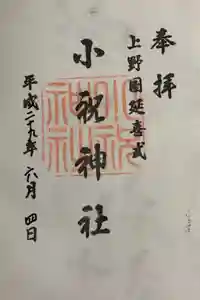 奉拝
上野国延喜式
小祝神社
平成二十九年 六月 四日